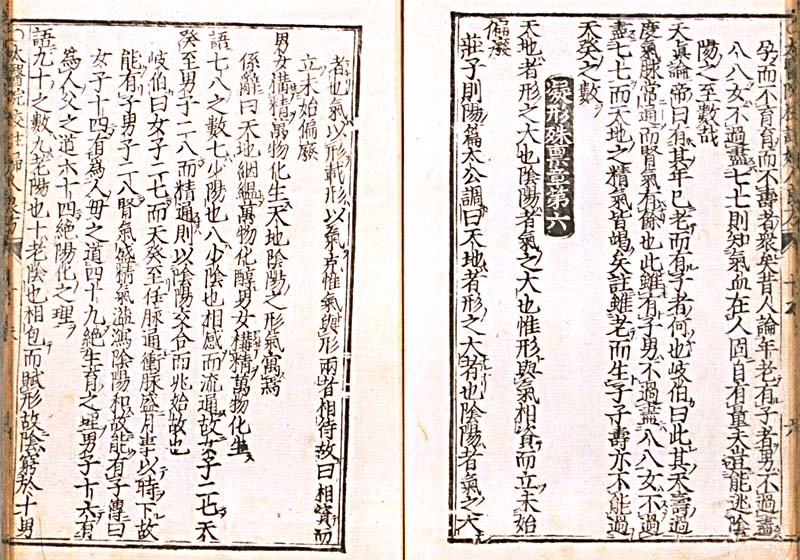 孕而不育育而不壽者衆矣昔人論年老有子者男不過盡
八八女不過盡七七則知氣血在人固自有量夫豈能逃陰
陽之至數哉
天眞論帝曰有其年已老而有子者何也岐伯曰此其天壽過
度氣脉常通而腎氣有餘也此雖有子男不過盡八八女不過
盡七七而天地之精氣皆竭矣註雖老而生子子壽亦不能過
天癸之數
凝形殊禀章第六
天地者形之大也陰陽者氣之大也惟形與氣相資而立未始
偏廢
莊子則陽篇太公調曰天地者形之大者也陰陽者氣之大
者也氣以形載形以氣昇惟氣與形兩者相待故曰相資而
立未始偏廢
男女構精萬物化生天地陰陽之形氣寓焉
係辭曰天地絪縕萬物化醇男女構精萬物化生
語七八之數七少陽也八少陰也相感而流通故女子二七天
癸至男子二八而精通則以陰陽交合而兆始故也
岐伯曰女子二七而天癸至任脉通衝脉盛月事以時下故
能有子男子二八腎氣盛精氣溢瀉陰陽和故能有子傳曰
女子十四有爲人母之道四十九絶生育之理男子十六有
爲人父之道六十四絶陽化之理
語九十之數九老陽也十老陰也相包而賦形故陰窮於十男